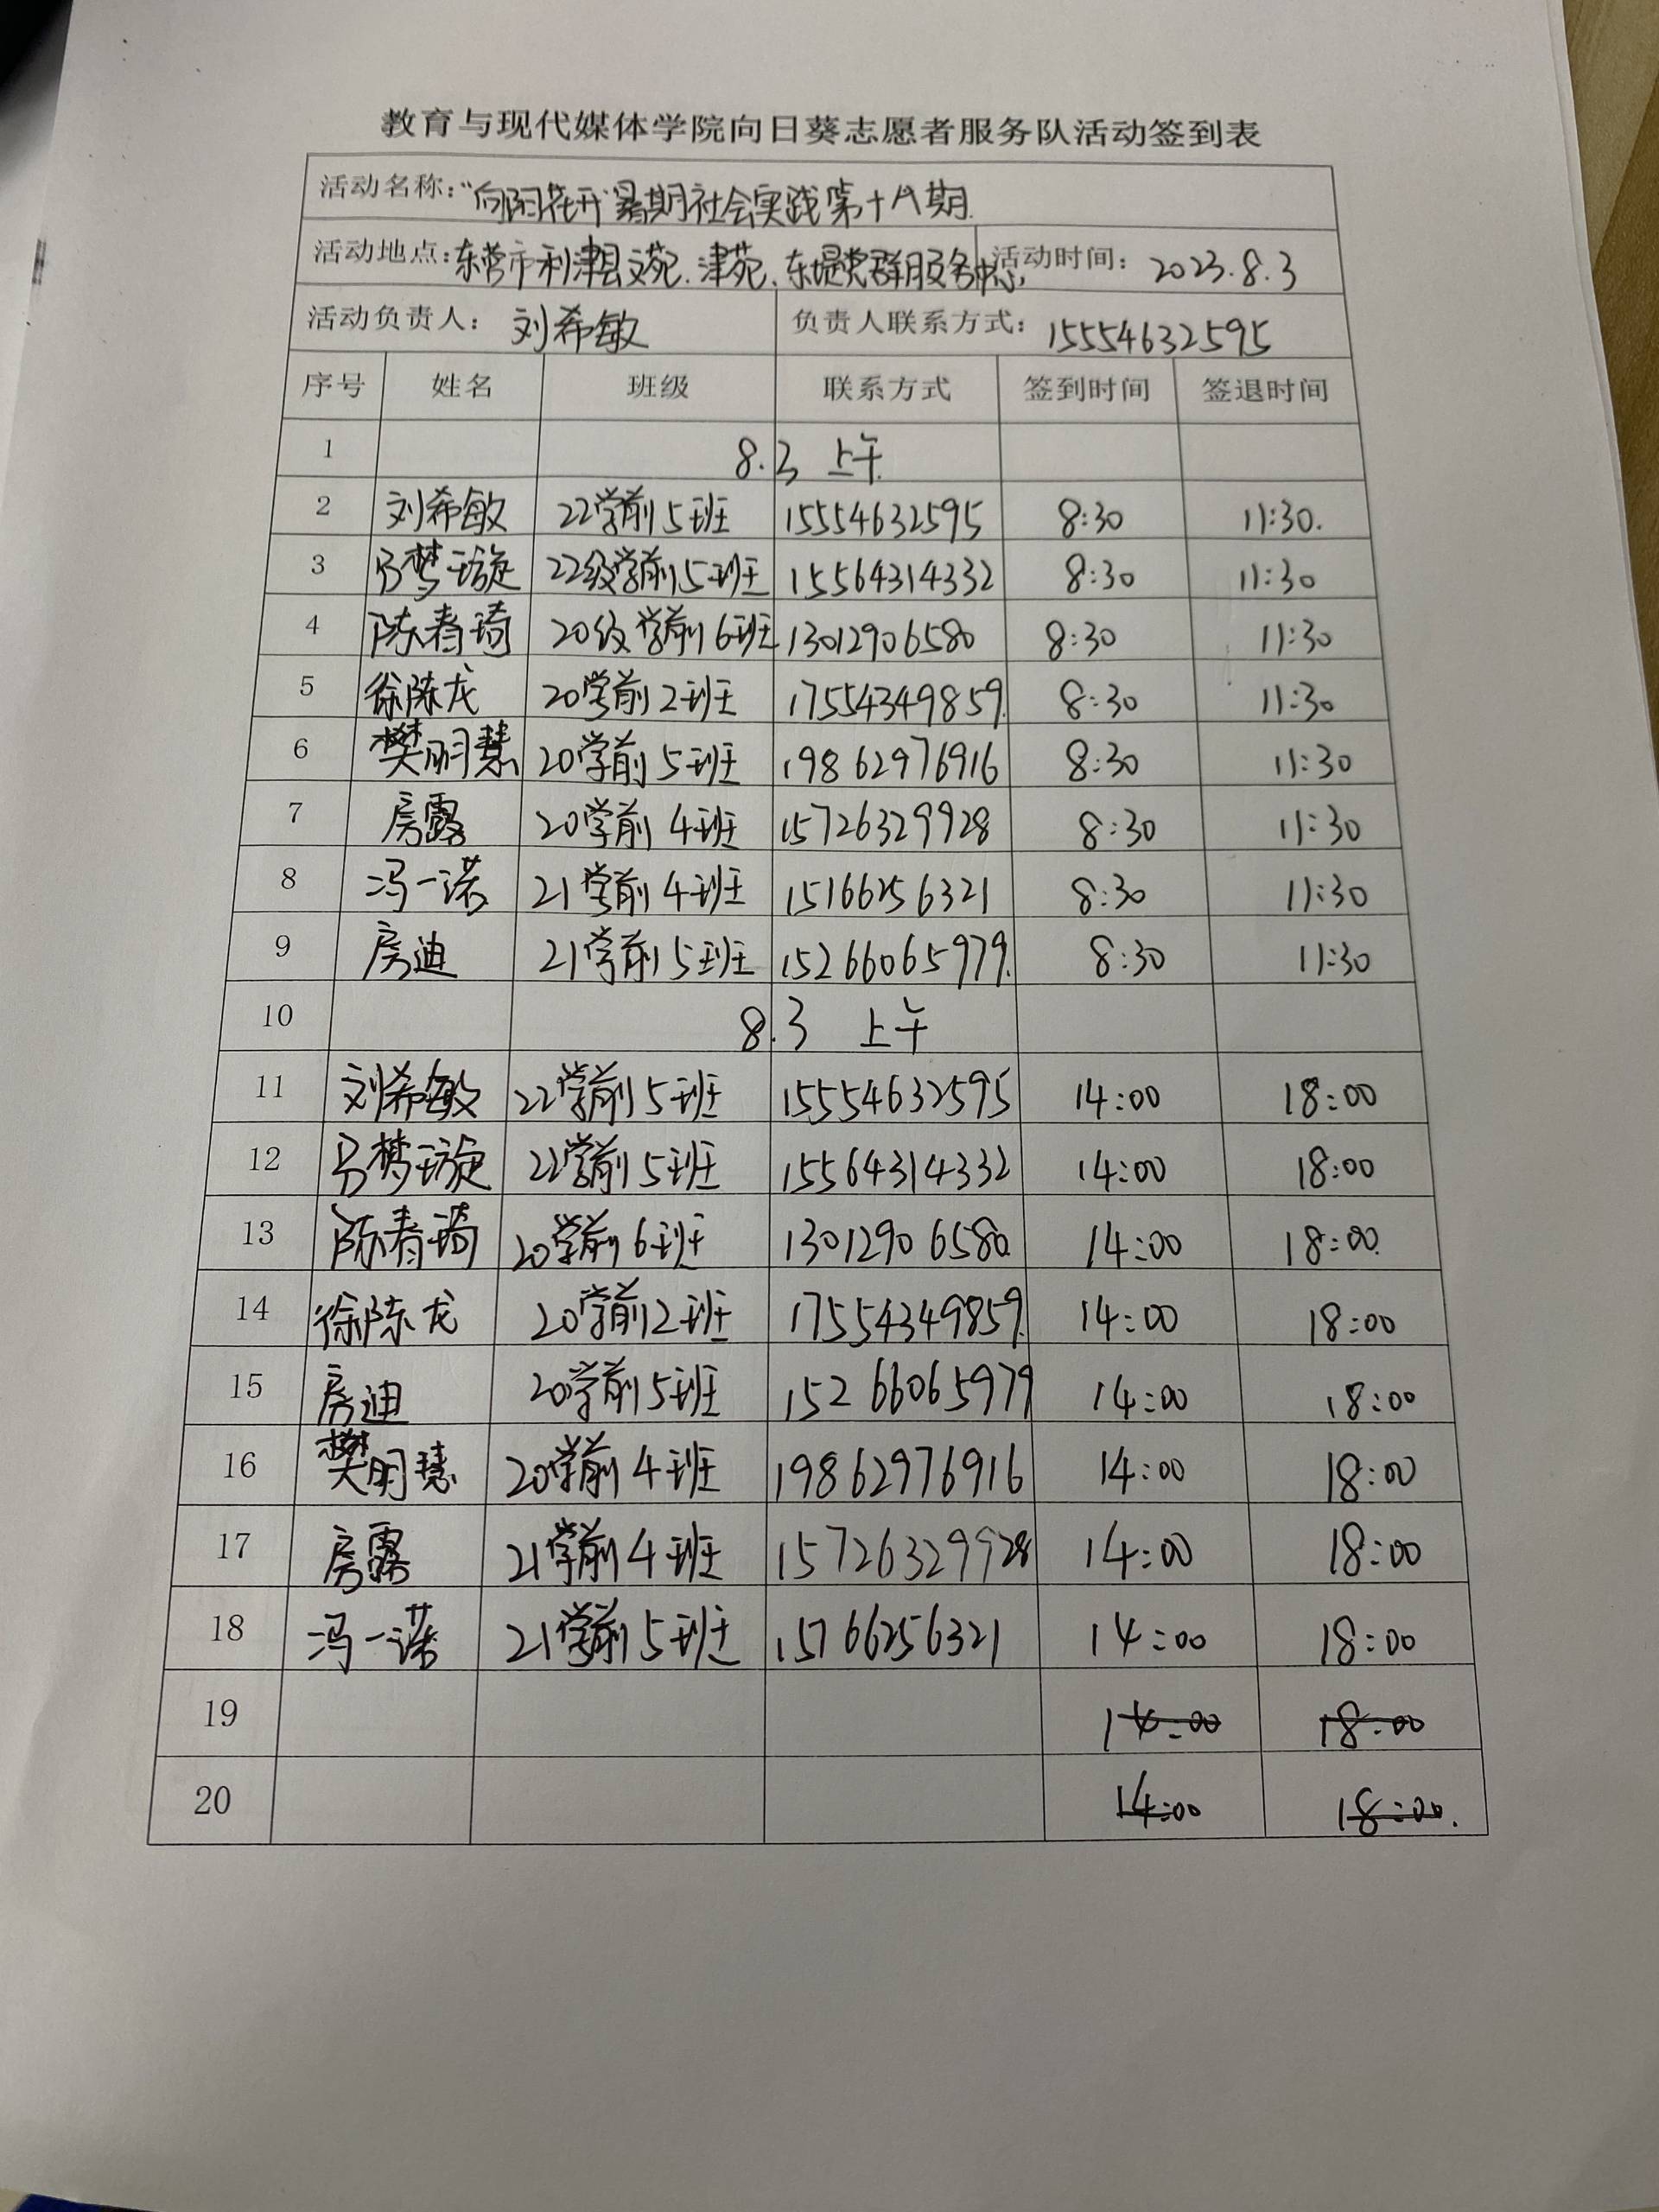 教育与现代媒体学院向日葵志愿者服务队活动签到表
活动名称:“向阳花开”暑期社会实践第十八期.
活动地点:东营市利津县文苑.津苑、东堤党群服务中心, 活动时间: 2023.8.3
活动负责人: 刘希敏 负责人联系方式: 15554632595
序号 姓名 班级 联系方式 签到时间 签退时间
1 8.3 上午.
2 刘希敏 22学前5班 15554632595 8:30 11:30.
3 马梦璇 22级学前5班 15564314332 8:30 11:30
4 陈春琦 20级学前6班 13012906580 8:30 11:30
5 徐陈龙 20学前2班 17554349859. 8:30 11:30
6 樊明慧 20学前5班 19862976916 8:30 11:30
7 房露 20学前4班 15726329928 8:30 11:30
8 冯一诺 21学前4班 15166256321 8:30 11:30
9 房迪 21学前5班 15266065979. 8:30 11:30
10 8.3 上午
11 刘希敏 22学前5班 15554632595 14:00 18:00
12 马梦璇 22学前5班 15564314332 14:00 18:00
13 陈春琦 20学前6班 13012906580. 14:00 18:00.
14 徐陈龙 20学前2班 17554349859. 14:00 18:00
15 房迪 20学前5班 15266065979 14:00 18:00
16 樊明慧 20学前4班 19862976916 14:00 18:00
17 房露 21学前4班 15726329928 14:00 18:00
18 冯一诺 21学前5班 15766256321 14:00 18:00
19 14:00 18:00
20 14:00 18:00.